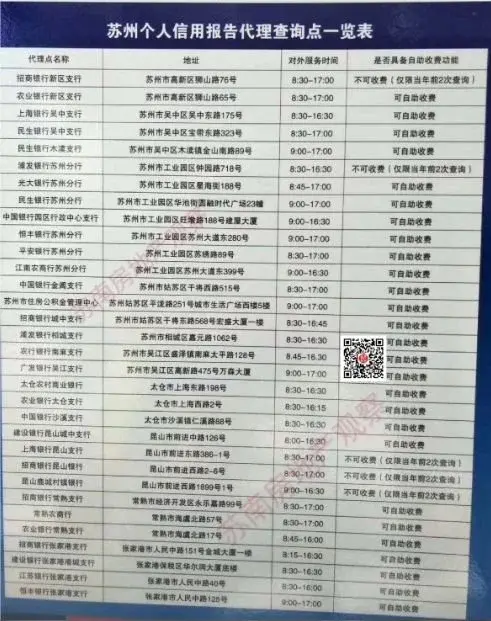 苏州个人信用报告代理查询点一览表
代理点名称 地址 对外服务时间 是否具备自助收费功能
招商银行新区支行 苏州市高新区狮山路76号 8:30-17:00 不可收费（仅限当年前2次查询）
农业银行新区支行 苏州市高新区狮山路65号 8:30-17:00 可自助收费
上海银行吴中支行 苏州市吴中区吴中东路175号 8:30-16:30 可自助收费
民生银行吴中支行 苏州市吴中区宝带东路323号 8:30-17:00 可自助收费
民生银行木渎支行 苏州市吴中区木渎镇金山南路89号 9:00-17:00 可自助收费
浦发银行苏州分行 苏州市工业园区钟园路718号 8:30-16:30 不可收费（仅限当年前2次查询）
光大银行苏州分行 苏州市工业园区星海街188号 8:45-17:00 可自助收费
民生银行苏州分行 苏州市工业园区华池街圆融时代广场23幢 9:00-17:00 可自助收费
中国银行园区行政中心支行 苏州市工业园区旺墩路188号建屋大厦 9:00-16:30 可自助收费
恒丰银行苏州分行 苏州市工业园区苏州大道东280号 9:00-17:00 可自助收费
平安银行苏州分行 苏州市工业园区苏绣路89号 9:00-17:00 可自助收费
江南农商行苏州分行 苏州市工业园区苏州大道东399号 9:00-16:30 可自助收费
中国银行金阊支行 苏州市姑苏区干将西路515号 9:00-17:00 可自助收费
苏州市住房公积金管理中心 苏州姑苏区平泷路251号城市生活广场西楼5楼 9:00-17:00 可自助收费
招商银行城中支行 苏州市姑苏区干将东路568号宏盛大厦一楼 8:30-16:45 可自助收费
浦发银行相城支行 苏州市相城区嘉元路1062号 8:30-17:00 可自助收费
农行银行南麻支行 苏州市吴江区盛泽镇南麻太平路128号 8:45-16:30 可自助收费
广发银行吴江支行 苏州市吴江区高新路475号万森大厦 8:30-17:00 可自助收费
太仓农村商业银行 太仓市上海东路198号 8:30-16:30 可自助收费
农业银行太仓支行 太仓市上海西路2号 8:30-16:15 可自助收费
中国银行沙溪支行 太仓市沙溪镇仁溪路88号 8:30-16:30 可自助收费
建设银行昆山城中支行 昆山市前进中路126号 8:00-16:30 可自助收费
上海银行昆山支行 昆山市前进东路386-1号 8:30-17:00 不可收费（仅限当年前2次查询）
招商银行昆山银行 昆山市前进西路2-8号 8:30-17:00 不可收费（仅限当年前2次查询）
昆山鹿城村镇银行 昆山市前进西路1899号1号 9:00-16:30 不可收费（仅限当年前2次查询）
招商银行常熟支行 常熟市经济开发区永乐嘉路99号 8:30-17:00 可自助收费
常熟农商行 常熟市海虞北路57号 8:30-17:00 可自助收费
农业银行常熟支行 常熟市海虞北路17号 8:45-16:00 可自助收费
招商银行张家港支行 张家港市人民中路151号金城大厦一楼 8:15-16:30 可自助收费
建设银行张家港港城支行 张家港保税区华尔润大厦底楼 8:30-16:30 可自助收费
江苏银行张家港支行 张家港市人民中路40号 8:30-16:00 可自助收费
恒丰银行张家港支行 张家港市人民中路128号 9:00-17:00 可自助收费
苏南房地产观察
苏南房地产观察